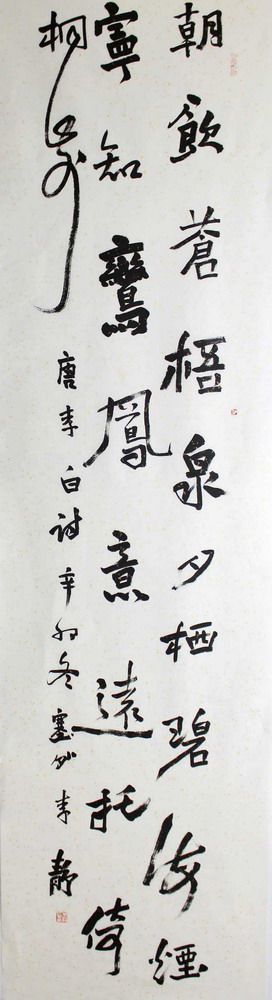 朝飲蒼梧泉夕栖碧海煙
寧知鸞鳳意遠托倚
桐前
唐李白詩辛卯冬李靜